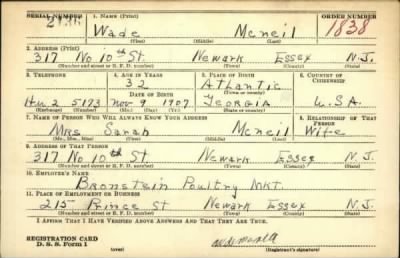 SERIAL NUMBER 1. NAME (Print) ORDER NUMBER
Wade McNeil 1838
(First) (Middle) (Last)
2. ADDRESS (Print)
317 No 10th St Newark Essex N.J.
(Number and street or R. F. D. number) (Town) (County) (State)
3. TELEPHONE 4. AGE IN YEARS 5. PLACE OF BIRTH 6. COUNTRY OF CITIZENSHIP
32 Atlantic
DATE OF BIRTH (Town or county)
Hu 2 5173 Nov 9 1907 Georgia U.S.A.
(Exchange) (Number) (Mo.) (Day) (Yr.) (State or country)
7. NAME OF PERSON WHO WILL ALWAYS KNOW YOUR ADDRESS 8. RELATIONSHIP OF THAT PERSON
Mrs Sarah McNeil Wife
(Mr., Mrs., Miss) (First) (Middle) (Last)
9. ADDRESS OF THAT PERSON
317 No 10th St Newark Essex N.J.
(Number and street or R. F. D. number) (Town) (County) (State)
10. EMPLOYER'S NAME
Bronstein Poultry Mkt.
11. PLACE OF EMPLOYMENT OR BUSINESS
215 Prince St Newark Essex N.J.
(Number and street or R. F. D. number) (Town) (County) (State)
I AFFIRM THAT I HAVE VERIFIED ABOVE ANSWERS AND THAT THEY ARE TRUE.
REGISTRATION CARD
D. S. S. Form 1 (over) (Registrant's signature)